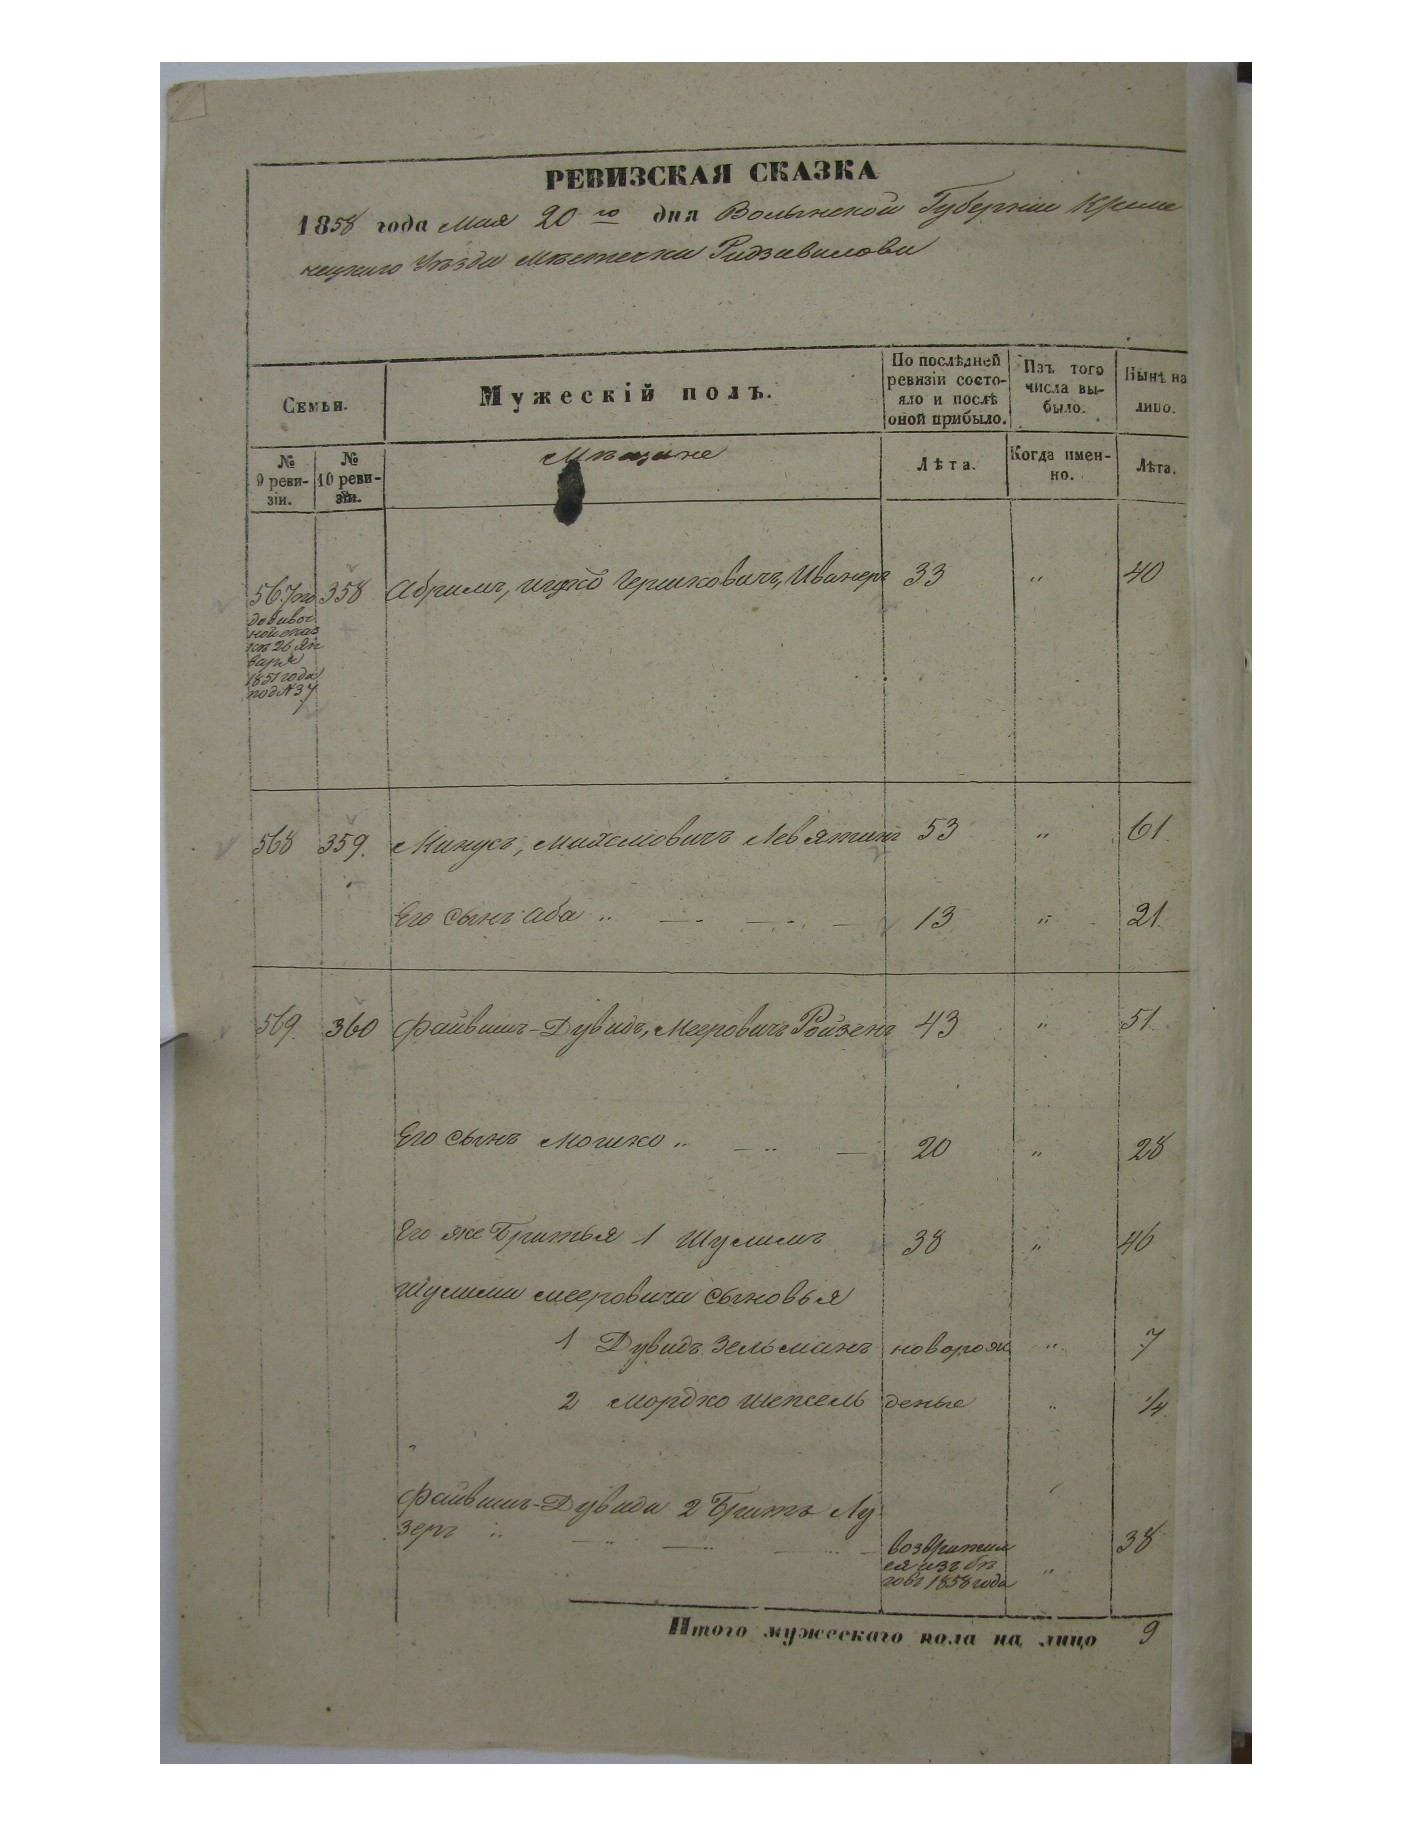 РЕВИЗСКАЯ СКАЗКА
1858 года Мая 20го дня Волынской Губернии Креме
нецкаго Уѣзда Мѣстечка Радзивилова
Семьи.
Мужескій полъ.
По послѣдней ревизіи состо-яло и послѣ оной прибыло.
Изъ того числа вы-было.
Нынѣ на лицо.
№ 9 реви-зіи.
№ 10 реви-зіи.
Мѣщане
Лѣта.
Когда имен-но.
Лѣта.
567 по 358 Абрамъ, Ицко Гершковичъ, Иванеръ 33 " 40
довивоч
ной сказ
кѣ 26 Ян
варя
1851 года
под №37
568 359. Манусъ, Михелювичъ Левятинъ 53 " 61
Его сынъ Аба " 13 " 21
569. 360 Файвишъ-Дувидъ, Мееровичъ Ройзенъ 43 " 51
Его сынъ Мошко " 20 " 28
Его же Братья 1 Шулимъ 38 " 46
Шулима Мееровича сыновья
1 Дувидъ Зельманъ новорож " 7
2 Мордко Шепсель деные " 1/4
Файвишъ-Дувида 2 Братъ Лу
зеръ " возвратил 38
ся изъ бѣ "
говъ 1858 года
Итого мужескаго пола на лицо 9